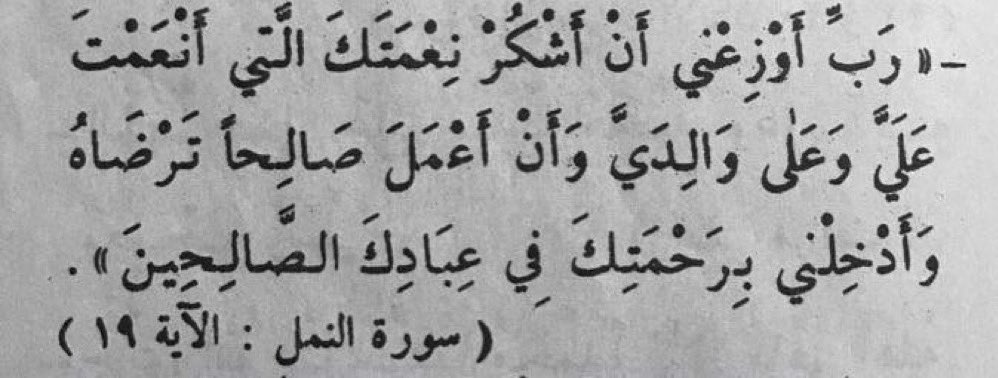 - «رَبِّ أَوْزِعْنِي أَنْ أَشْكُرْ نِعْمَتَكَ الَّتِي أَنْعَمْتَ
عَلَيَّ وَعَلٰى وَالِدَيَّ وَأَنْ أَعْمَلَ صَالِحاً تَرْضَاهُ
وَأَدْخِلْنِي بِرَحْمَتِكَ فِي عِبَادِكَ الصَّالِحِينَ» .
( سورة النمل : الآية ١٩ )